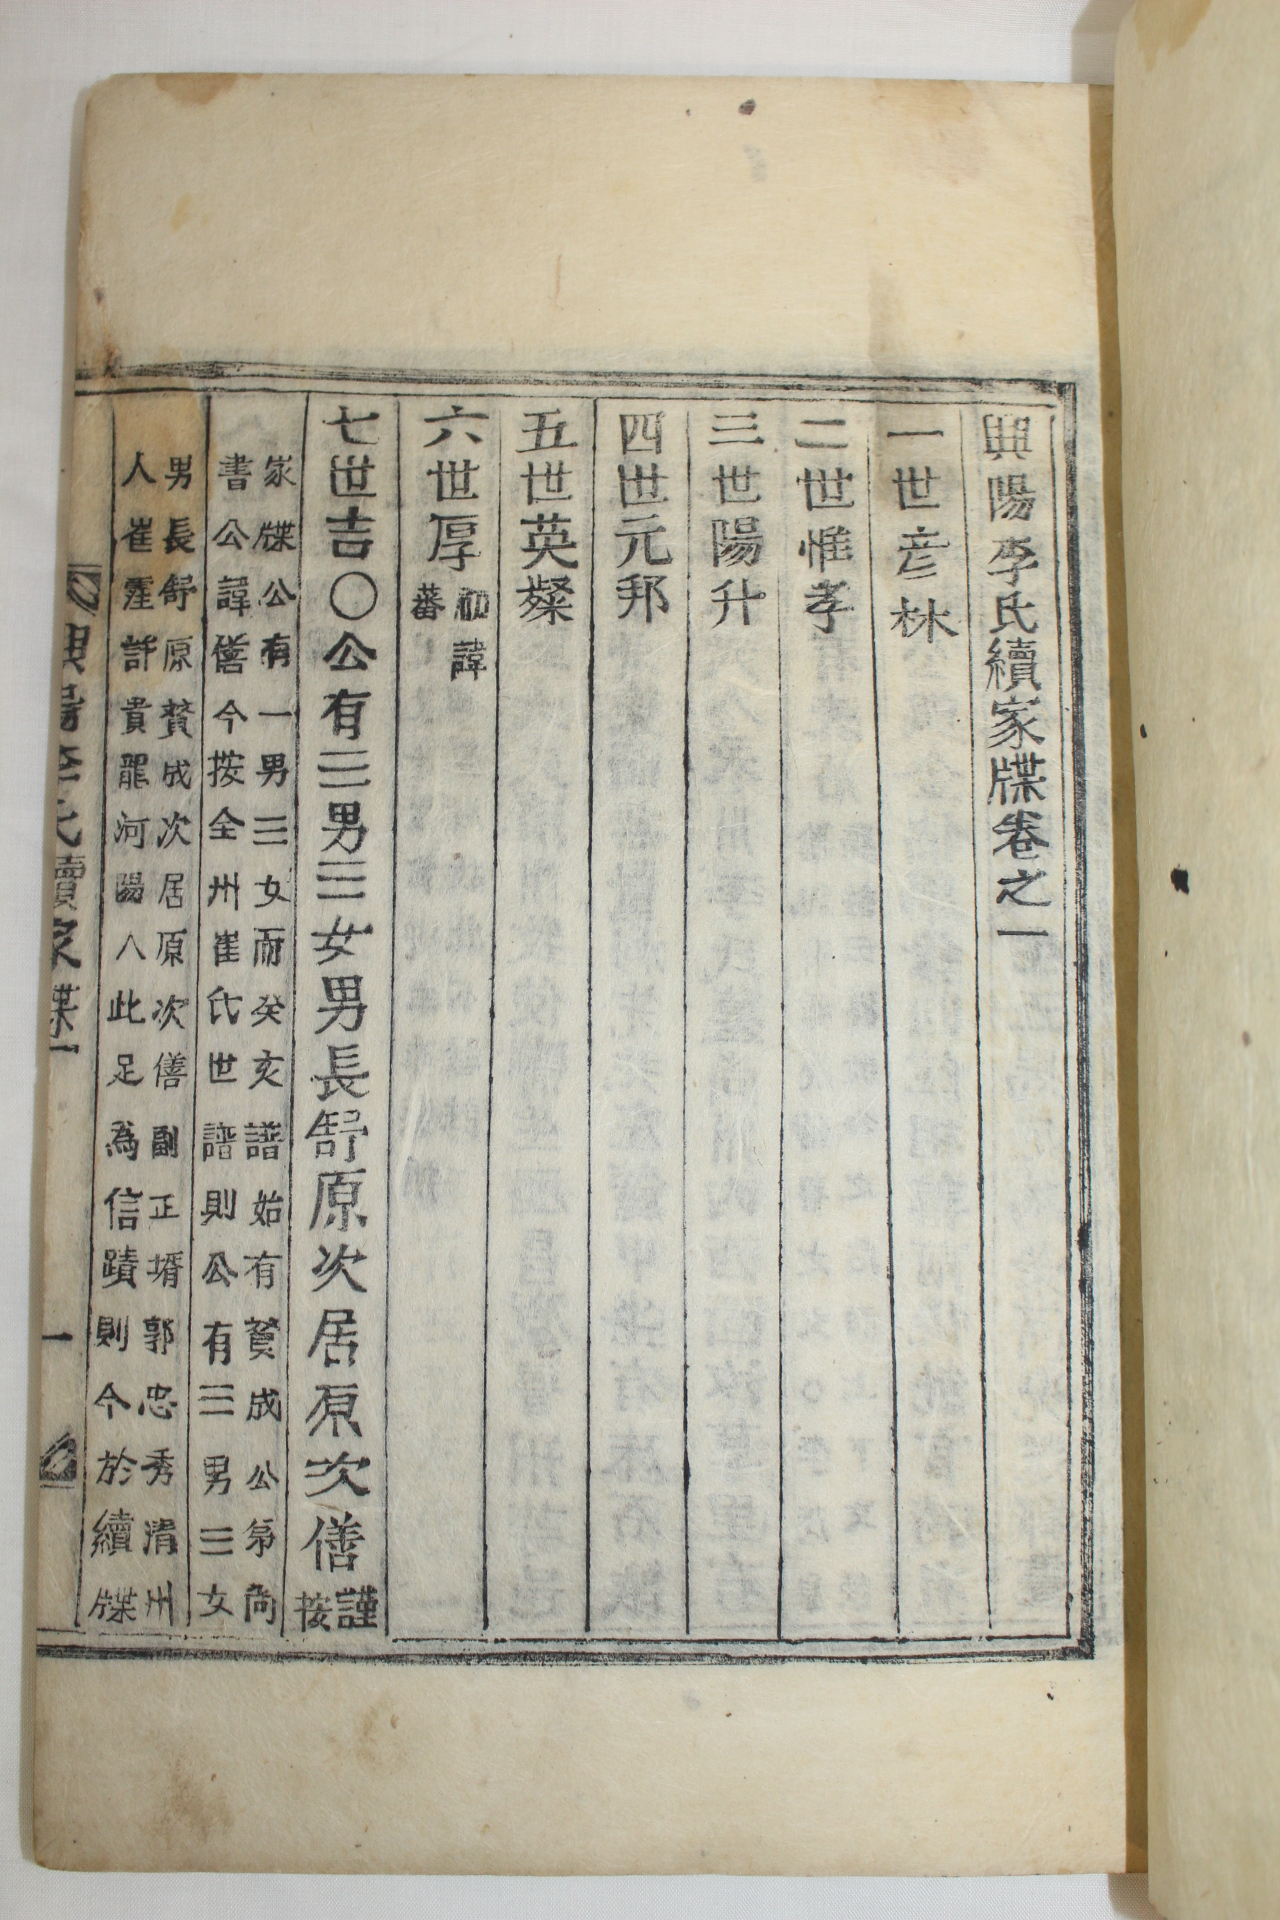 興陽李氏續家牒卷之一
一世彦林
二世惟孝
三世陽升
四世元邦
五世英粲
六世厚初諱
蕃
七世吉〇公有三男三女男長舒原次居原次僐謹
按
家牒公有一男三女而癸亥譜始有贊成公第尚
書公諱僐今按全州崔氏世譜則公有三男三女
男長舒原贊成次居原次僐副正壻郭忠秀淸州
人崔霔許貴龍河陽人此足為信蹟則今於續牒
興陽李氏續家牒一
一